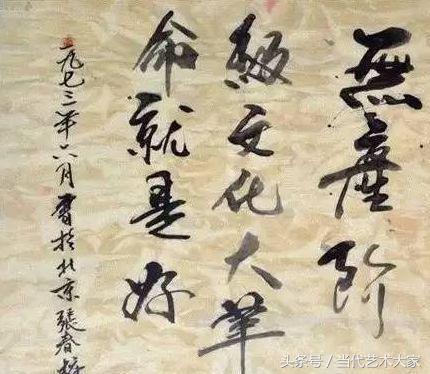 無產阶
級文化大革
命就是好
一九七三年六月書於北京 張春橋
头条号 / 当代艺术大家